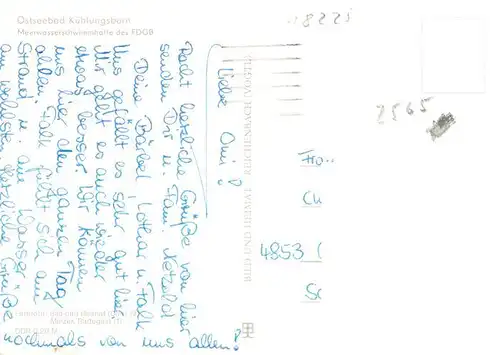 Ostseebad Kühlungsborn
Meerwasserschwimmhalle des FDGB
Liebe Omi!
Recht herzliche Grüße von hier
senden Dir u. Fam. Netzold
Deine Bärbel Lothar u. Falk
Uns gefällt es sehr gut hier
Mir geht es auch wieder
etwas besser. Wir können
uns hier den ganzen Tag
aalen. Falk fühlt sich am
Strand u. am Wasser
am wohlsten. Herzliche Grüße
nochmals von uns allen!
BILD UND HEIMAT REICHENBACH
2565
4853